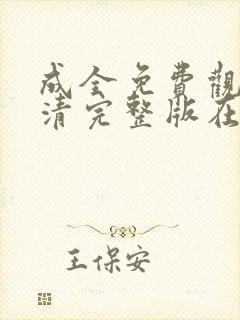 成全免費觀
清完整版在
王保安